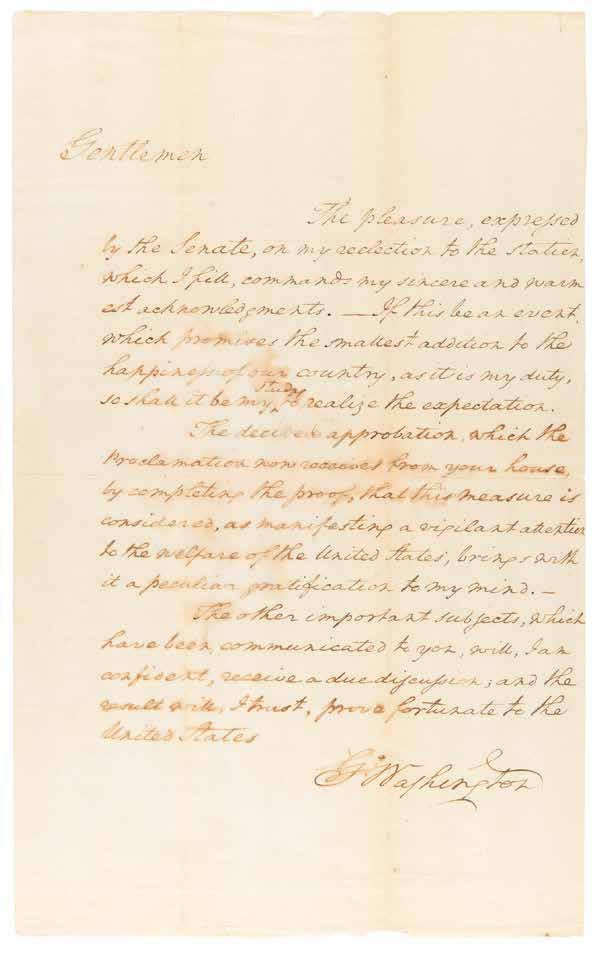 Gentlemen
The pleasure, expressed
by the Senate, on my reelection to the station,
which I fill, commands my sincere and warm
est acknowledgments. — If this be an event,
which promises the smallest addition to the
happiness of our country, as it is my duty,
so shall it be my study to realize the expectation.
The decided approbation, which the
Proclamation now receives from your house,
by completing the proof, that this measure is
considered, as manifesting a vigilant attention
to the welfare of the United States, brings with
it a peculiar gratification to my mind. —
The other important subjects, which
have been communicated to you, will, I am
confident, receive a due discussion; and the
result will, I trust, prove fortunate to the
United States
Go Washington